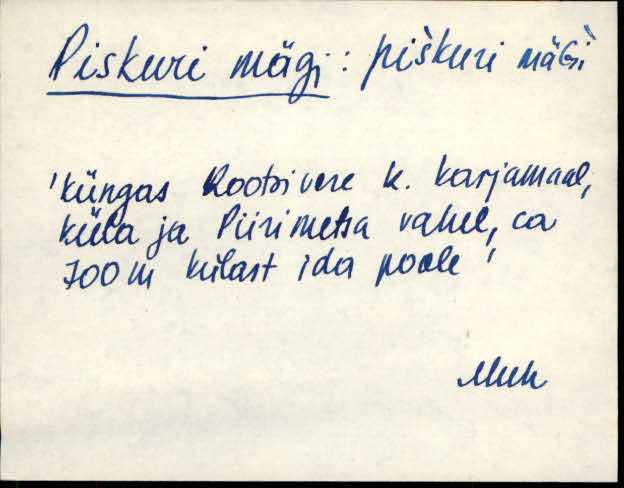 Piskuri mägi : piškuri mäGi
'küngas Rootsivere k. karjamaal,
küla ja Piirimetsa vahel, ca
700 m külast ida poole'
Muh